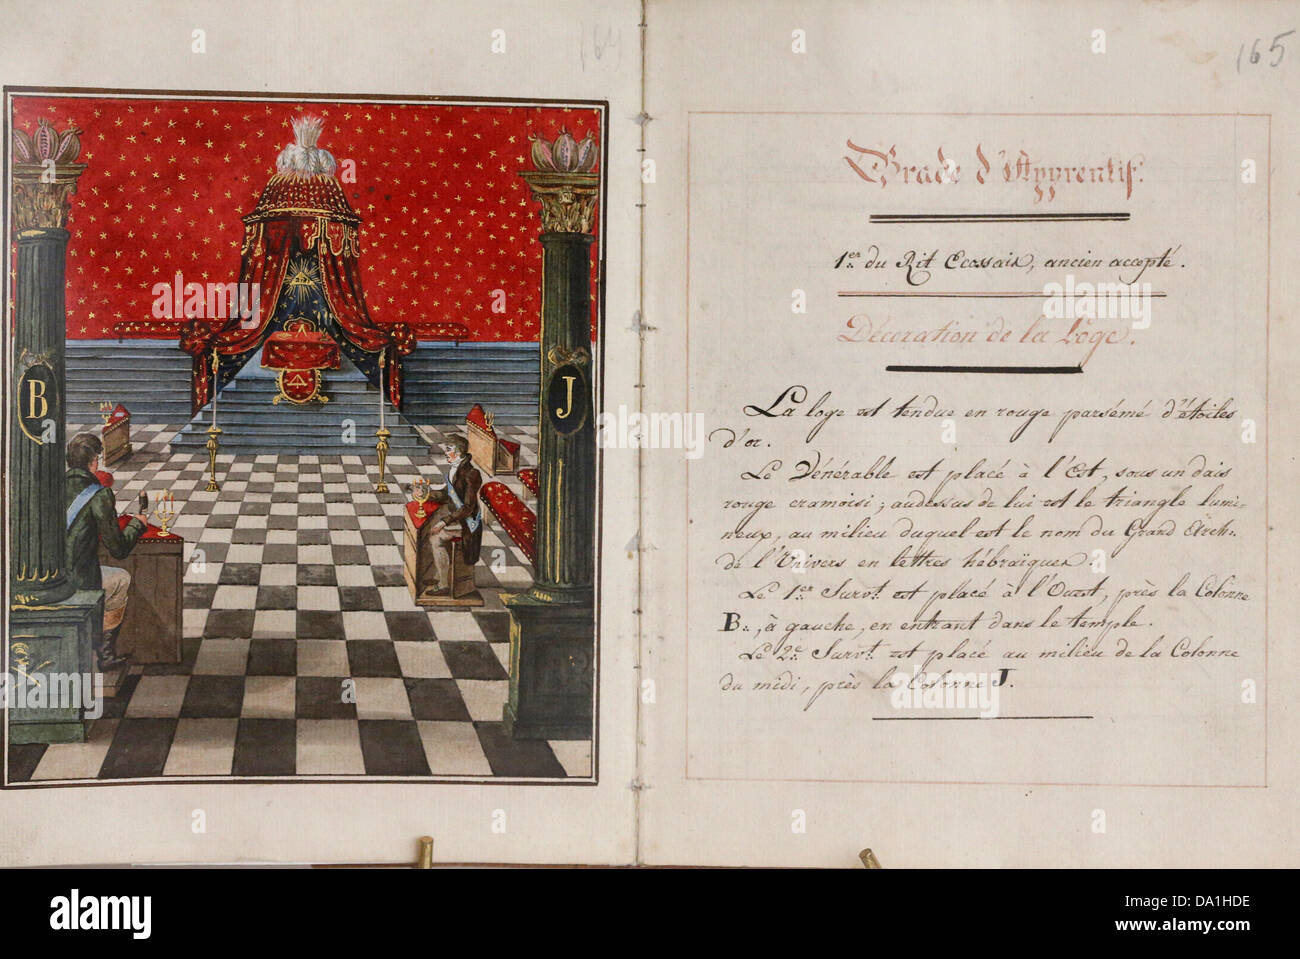 164
165
B
J
Grade d'Apprentif.
1.er du Rit Ecossais, ancien accepté.
Décoration de la Loge.
La loge est tendue en rouge parsémé d'étoiles
d'or.
Le Vénérable est placé à l'Est, sous un dais
rouge cramoisi; audessus de lui est le triangle lumi-
neux, au milieu duquel est le nom du Grand Arch:
de l'Univers en lettres hébraïques.
Le 1.er Surv.t est placé à l'Ouest, près la Colonne
B., à gauche, en entrant dans le temple.
Le 2.e Surv.t est placé au milieu de la Colonne
du midi, près la Colonne J.
alamy
a
alamy stock photo
DA1HDE
www.alamy.com